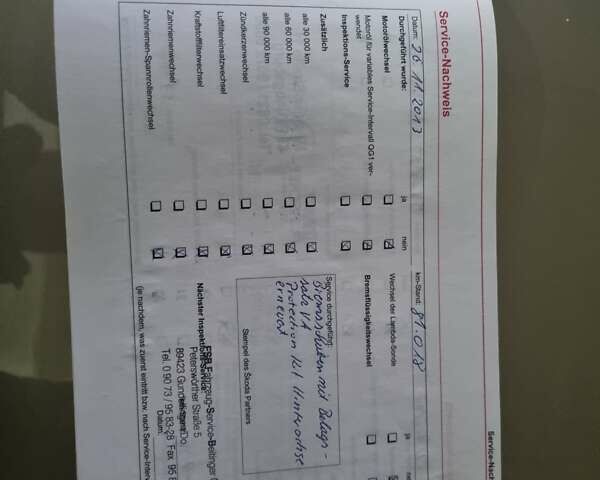 Service-Nachweis
Service-Nach
Datum: 26.11.2013 km-Stand: 81.018
Durchgeführt wurde: ja nein ja
Motorölwechsel
Wechsel der Lambda-Sonde
Motoröl für variables Service-Intervall QG1 ver-
wendet
Bremsflüssigkeitswechsel
Inspektions-Service
Zusätzlich
alle 30 000 km
alle 60 000 km
alle 90 000 km
Zündkerzenwechsel
Luftfiltereinsatzwechsel
Kraftstofffilterwechsel
Zahnriemenwechsel
Zahnriemen-Spannrollenwechsel
Service durchgeführt:
Bremsscheiben mit Belags-
satz VA
erneuert
Stempel des Škoda Partners
Nächster Inspektions-Service
FSB Fahrzeug-Service-Beitinger
Peterswörther Straße 5
89423 Gundelfingen/Do.
Tel. 0 90 73 / 95 83-28 Fax 95 8
Datum:
(je nachdem, was zuerst eintritt bzw. nach Service-Interv